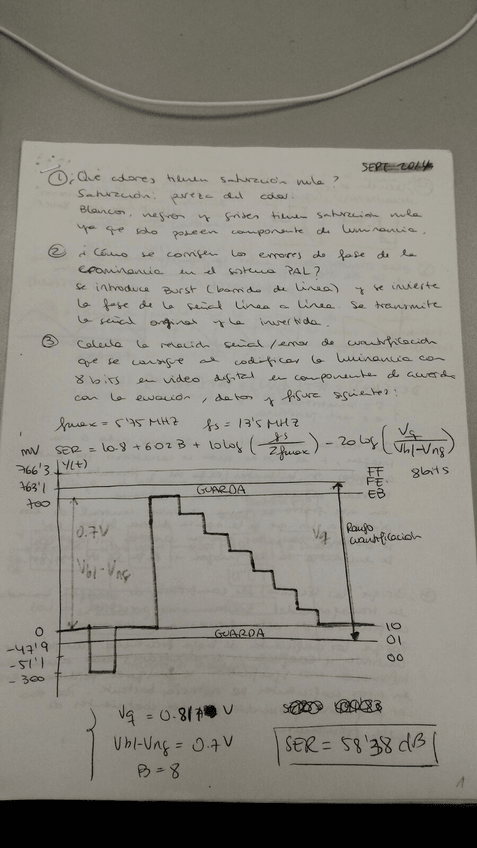 SEPT 2014
① ¿Qué colores tienen saturación nula?
Saturación: pureza del color.
Blancos, negros y grises tienen saturación nula
ya que solo poseen componente de luminancia.
② ¿Cómo se corrigen los errores de fase de la
crominancia en el sistema PAL?
Se introduce Burst (barrido de línea) y se invierte
la fase de la señal línea a línea. Se transmite
la señal original y la invertida.
③ Calcula la relación señal/error de cuantificación
que se consigue al codificar la luminancia con
8 bits en video digital en componentes de acuerdo
con la ecuación, datos y figura siguientes:
fmax = 5'75 MHZ fs = 13'5 MHZ
SER = 10.8 + 6.02 B + 10 log (fs / 2fmax) - 20 log (Vq / Vbl-Vng)
mV
766'3 Y(t) FF 8 bits
763'1 FE
GUARDA
700 EB
0.7V
Vq Rango cuantificación
Vbl-Vng
0 10
GUARDA
-47'9 01
-51'1 00
-300
Vq = 0.817 V
Vbl-Vng = 0.7 V
B = 8
SER = 58'38 dB
1